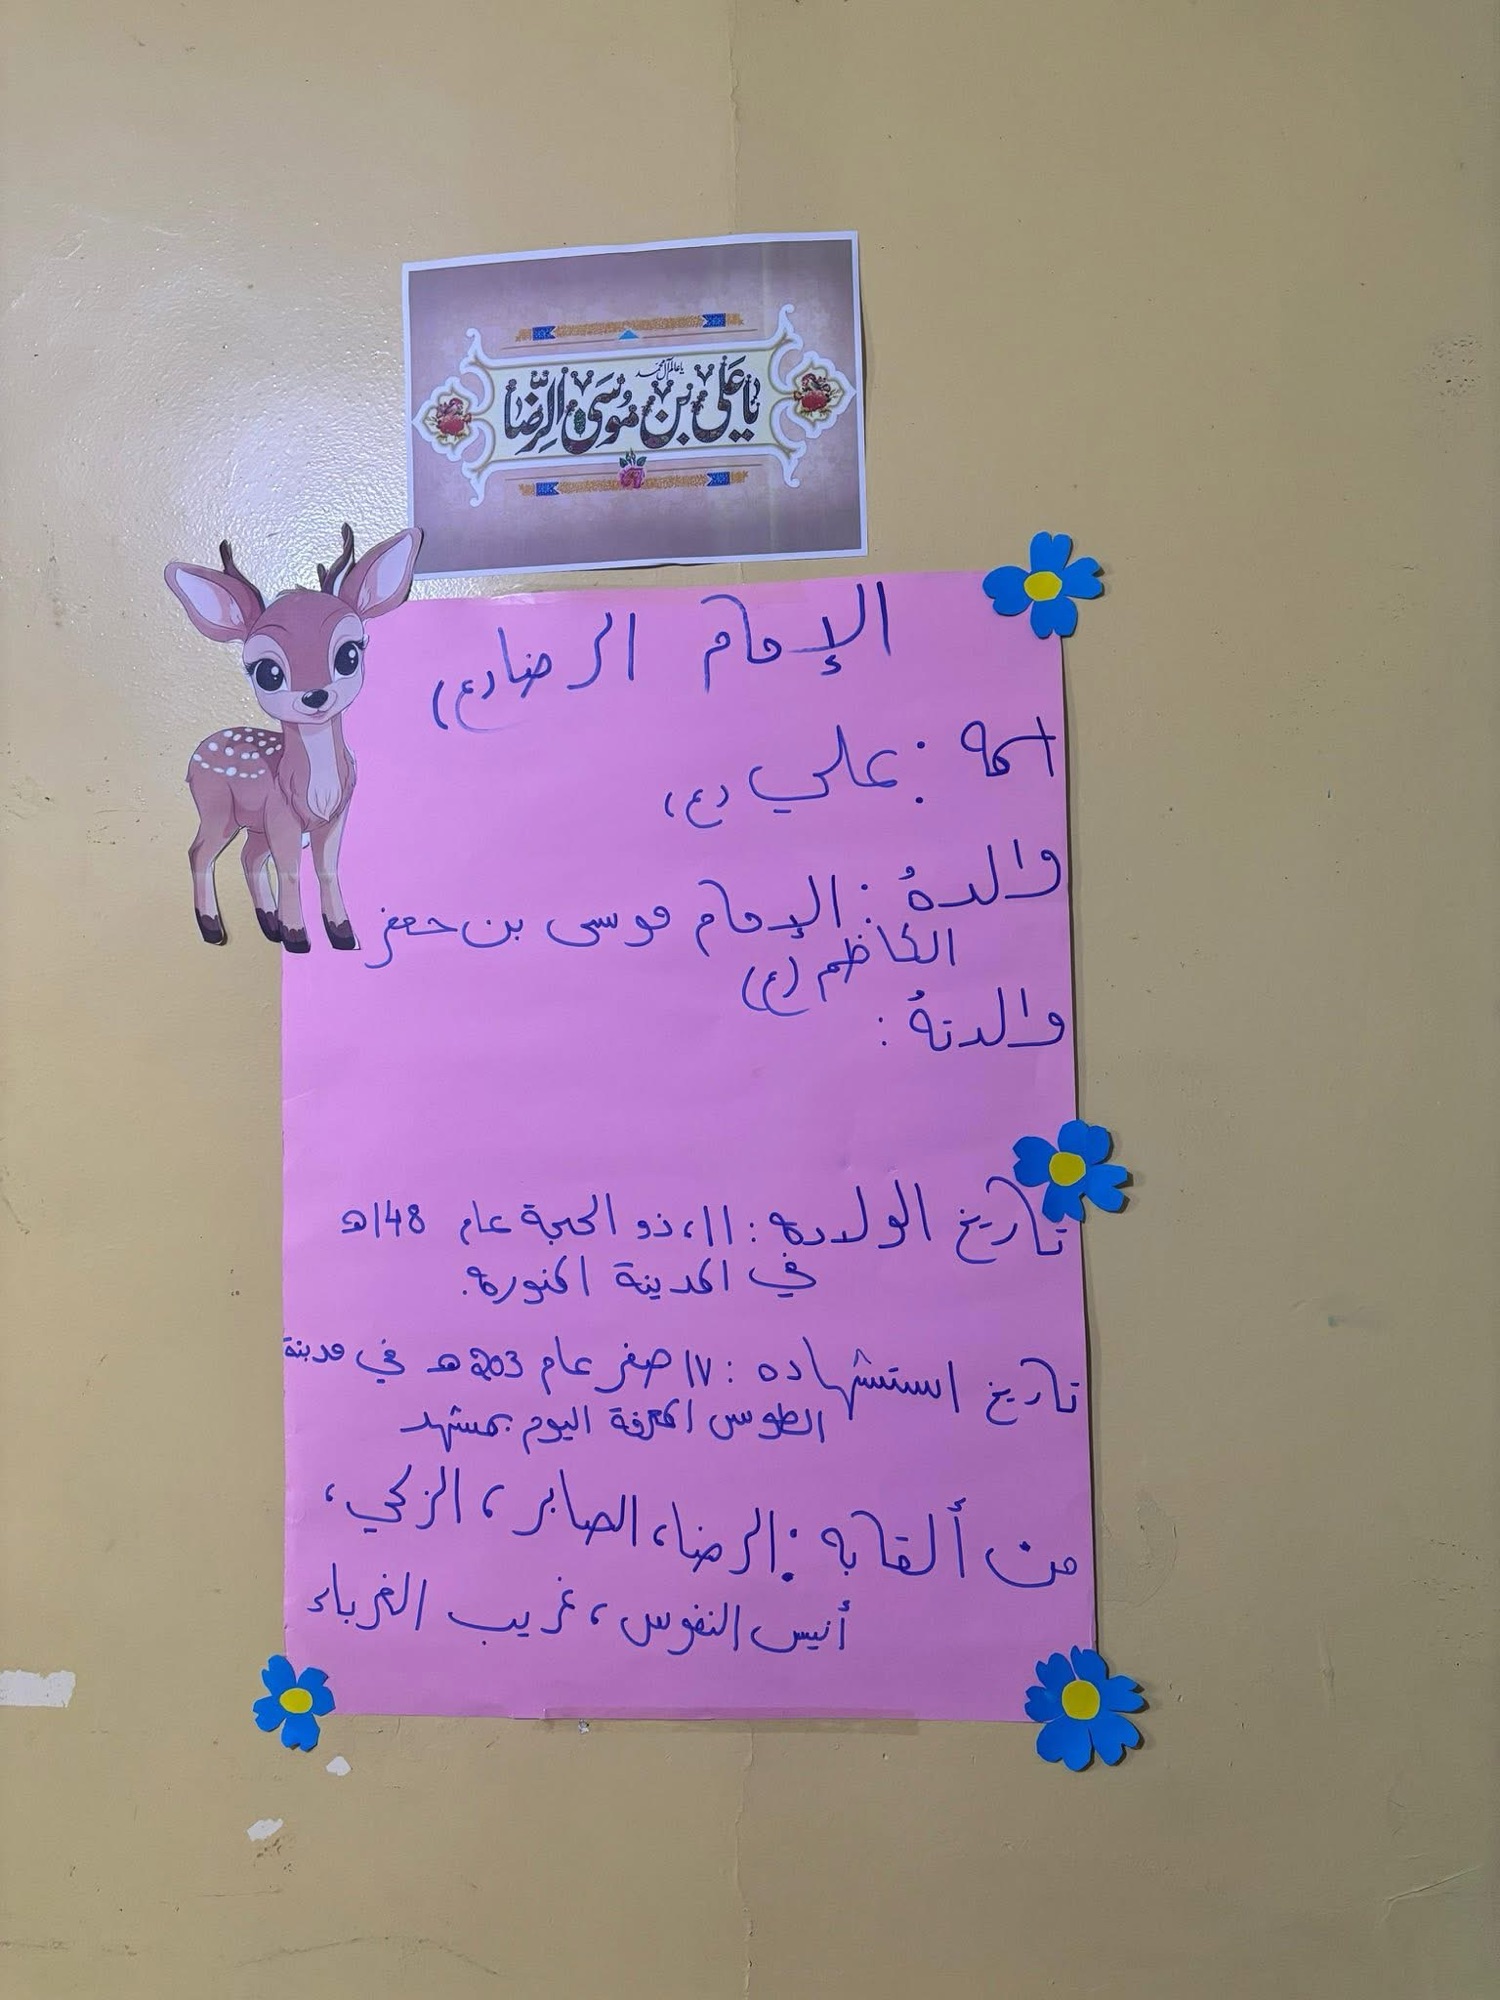 يا عالم آل محمد
يا علي بن موسى الرضا
الإمام الرضا (ع)
اسمه : علي (ع)
والدهُ : الإمام موسى بن جعفر
الكاظم (ع)
والدتهُ :
تاريخ الولاده : 11، ذو الحجة عام 148هـ
في المدينة المنوره.
تاريخ استشهاده : ١٧ صفر عام 203هـ في مدينة
الطوس المعرفة اليوم بمشهد
من ألقابه : الرضا، الصابر، الزكي،
أنيس النفوس، غريب الغرباء